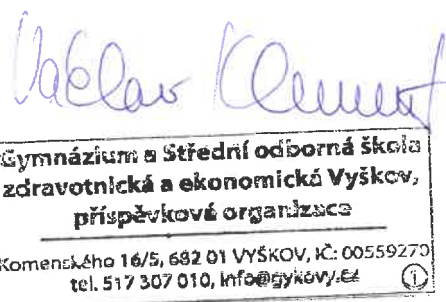 Václav Klement
Gymnázium a Střední odborná škola
zdravotnická a ekonomická Vyškov,
příspěvková organizace
Komenského 16/5, 682 01 VYŠKOV, IČ: 00559270
tel. 517 307 010, info@gykovy.cz
1